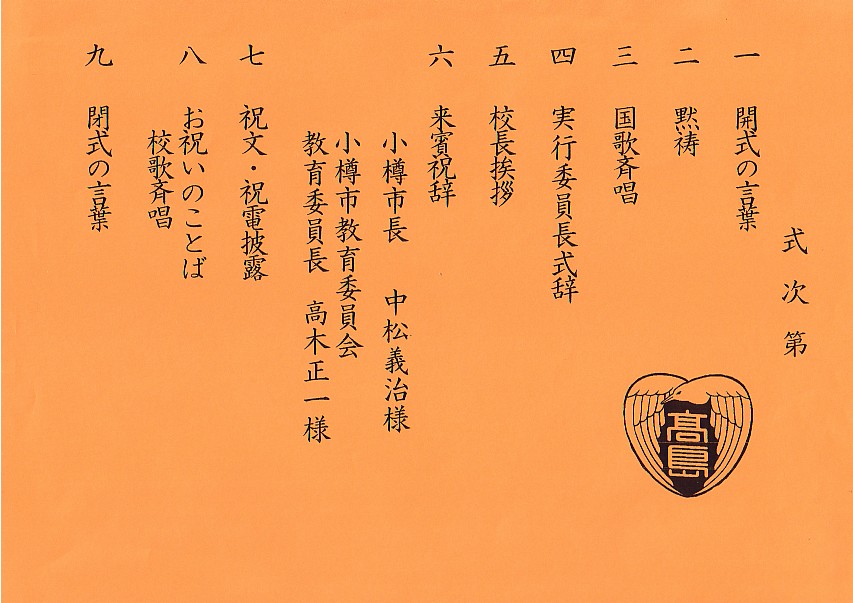 式次第
一 開式の言葉
二 黙祷
三 国歌斉唱
四 実行委員長式辞
五 校長挨拶
六 来賓祝辞
小樽市長 中松義治様
小樽市教育委員会
教育委員長 高木正一様
七 祝文・祝電披露
八 お祝いのことば
校歌斉唱
九 閉式の言葉
髙島